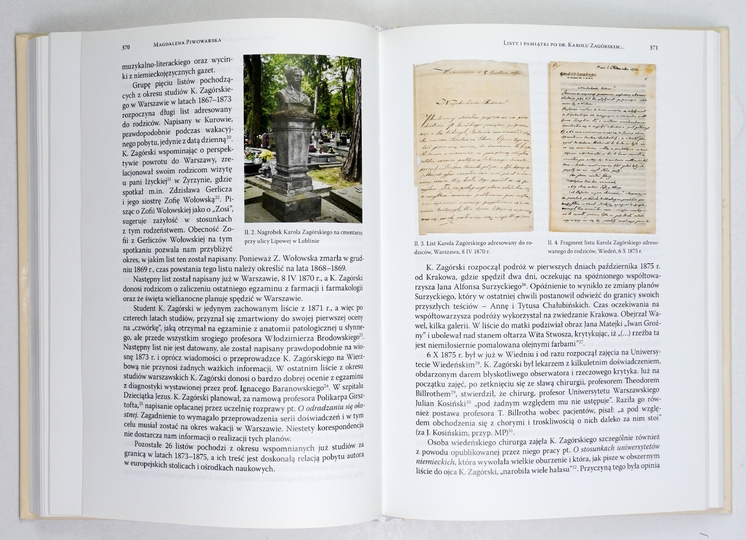 370
MAGDALENA PIWOWARSKA
muzykalno-literackiego oraz wycin-
ki z niemieckojęzycznych gazet.
Grupę pięciu listów pochodzą-
cych z okresu studiów K. Zagórskie-
go w Warszawie w latach 1867–1873
rozpoczyna długi list adresowany
do rodziców. Napisany w Kurowie,
prawdopodobnie podczas wakacyj-
nego pobytu, jedynie z datą dzienną
K. Zagórski wspominając o perspek-
tywie powrotu do Warszawy, zre-
lacjonował swoim rodzicom wizytę
u pani Iżyckiej²¹ w Żyrzynie, gdzie
spotkał m.in. Zdzisława Gerlicza
i jego siostrę Zofię Wołowską²². Pi-
sząc o Zofii Wołowskiej jako o „Zosi”,
sugeruje zażyłość w stosunkach
z tym rodzeństwem. Obecność Zo-
fii z Gerliczów Wołowskiej na tym
spotkaniu pozwala nam przybliżyć
okres, w jakim list ten został napisany. Ponieważ Z. Wołowska zmarła w grud-
niu 1869 r., czas powstania tego listu należy określić na lata 1868–1869.
Następny list został napisany już w Warszawie, 8 IV 1870 r., a K. Zagórski
donosi rodzicom o zaliczeniu ostatniego egzaminu z farmacji i farmakologii
oraz że święta wielkanocne planuje spędzić w Warszawie.
Student K. Zagórski w jedynym zachowanym liście z 1871 r., a więc po
czterech latach studiów, przyznał się zmartwiony do swojej pierwszej oceny
na „czwórkę”, jaką otrzymał na egzaminie z anatomii patologicznej u słynne-
go, ale przede wszystkim srogiego profesora Włodzimierza Brodowskiego²³.
Następny list nie jest datowany, ale został napisany prawdopodobnie na wio-
snę 1873 r. i oprócz wiadomości o przeprowadzce K. Zagórskiego na Wierz-
bową nie przynosi żadnych ważkich informacji. W ostatnim liście z okresu
studiów warszawskich K. Zagórski donosi o bardzo dobrej ocenie z egzaminu
z diagnostyki wystawionej przez prof. Ignacego Baranowskiego²⁴. W szpitalu
Dzieciątka Jezus, K. Zagórski planował, za namową profesora Polikarpa Girsz-
tofta,²⁵ napisanie opłacanej przez uczelnię rozprawy pt. O odradzaniu się oko-
stnej. Zagadnienie to wymagało przeprowadzenia serii doświadczeń i w tym
celu musiał zostać na okres wakacji w Warszawie. Niestety korespondencja
nie dostarcza nam informacji o realizacji tych planów.
Pozostałe 26 listów pochodzi z okresu wspomnianych już studiów za
granicą w latach 1873–1875, a ich treść jest doskonałą relacją pobytu autora
w europejskich stolicach i ośrodkach naukowych.
Il. 2. Nagrobek Karola Zagórskiego na cmentarzu
przy ulicy Lipowej w Lublinie
LISTY I PAMIĄTKI PO DR. KAROLU ZAGÓRSKIM...
371
Il. 3. List Karola Zagórskiego adresowany do ro-
dziców, Warszawa, 8 IV 1870 r.
Il. 4. Fragment listu Karola Zagórskiego adreso-
wanego do rodziców, Wiedeń, 6 X 1875 r.
K. Zagórski rozpoczął podróż w pierwszych dniach października 1875 r.
od Krakowa, gdzie spędził dwa dni, oczekując na spóźnionego współtowa-
rzysza Jana Alfonsa Surzyckiego²⁶. Opóźnienie to wynikło ze zmiany planów
Surzyckiego, który w ostatniej chwili postanowił odwieźć do granicy swoich
przyszłych teściów – Annę i Tytusa Chałubińskich. Czas oczekiwania na
współtowarzysza podróży wykorzystał na zwiedzanie Krakowa. Obejrzał Wa-
wel, kilka galerii. W liście do matki podziwiał obraz Jana Matejki „Iwan Groź-
ny” i ubolewał nad stanem ołtarza Wita Stwosza, krytykując, iż „(...) rzeźba ta
jest niemiłosiernie pomalowana olejnymi farbami”²⁷.
6 X 1875 r. był w już w Wiedniu i od razu rozpoczął zajęcia na Uniwersy-
tecie Wiedeńskim²⁸. K. Zagórski był lekarzem z kilkuletnim doświadczeniem,
obdarzonym darem błyskotliwego obserwatora i rzeczowego krytyka. Już na
początku zajęć, po zetknięciu się ze sławą chirurgii, profesorem Theodorem
Billrothem²⁹, stwierdził, że chirurg, profesor Uniwersytetu Warszawskiego
Julian Kosiński³⁰ „pod żadnym względem mu nie ustępuje”. Raziła go rów-
nież postawa profesora T. Billrotha wobec pacjentów, pisał: „a pod wzglę-
dem obchodzenia się z chorymi i troskliwością o nich daleko za nim stoi”
(za J. Kosińskim, przyp. MP)³¹.
Osoba wiedeńskiego chirurga zajęła K. Zagórskiego szczególnie również
z powodu opublikowanej przez niego pracy pt. O stosunkach uniwersytetów
niemieckich, która wywołała wielkie oburzenie i która, jak pisze w obszernym
liście do ojca K. Zagórski, „narobiła wiele hałasu”³². Przyczyną tego była opinia